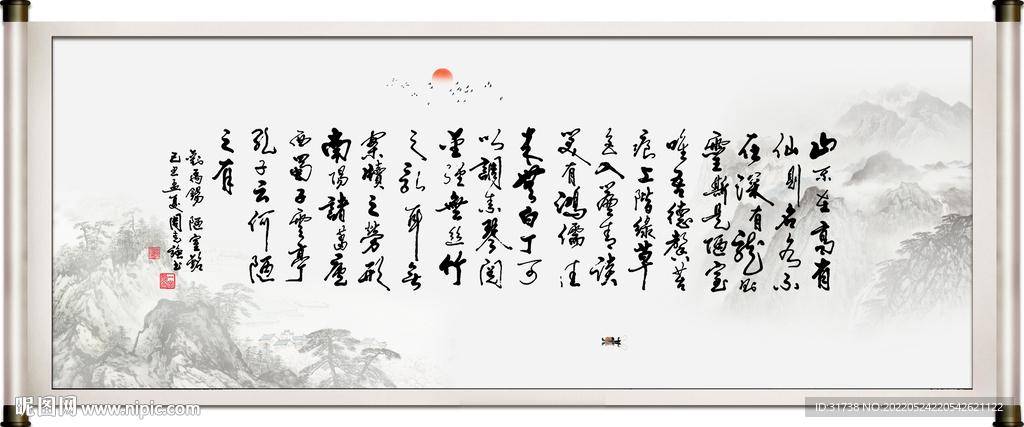 山不在高有
仙則名水不
在深有龍則
靈斯是陋室
唯吾德馨苔
痕上階綠草
色入簾青談
笑有鴻儒往
来無白丁可
以調素琴閱
金經無絲竹
之亂耳無
案牘之勞形
南陽諸葛廬
西蜀子雲亭
孔子云何陋
之有
劉禹錫 陋室銘
己丑孟夏周
昵图网 www.nipic.com
ID:31738 NO:20220524220542621122